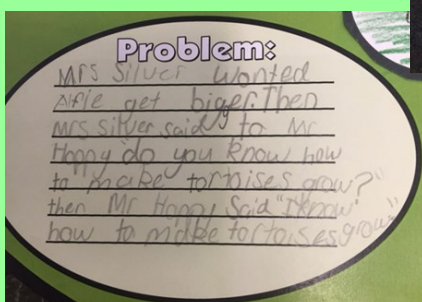 Problem:
Mrs Silver wonted
Alfie get biger. Then
Mrs silver said to Mr
Hoppy "do you know how
to make tortoises grow?"
then Mr Hoppy Said "I know
how to make tortoises grow"